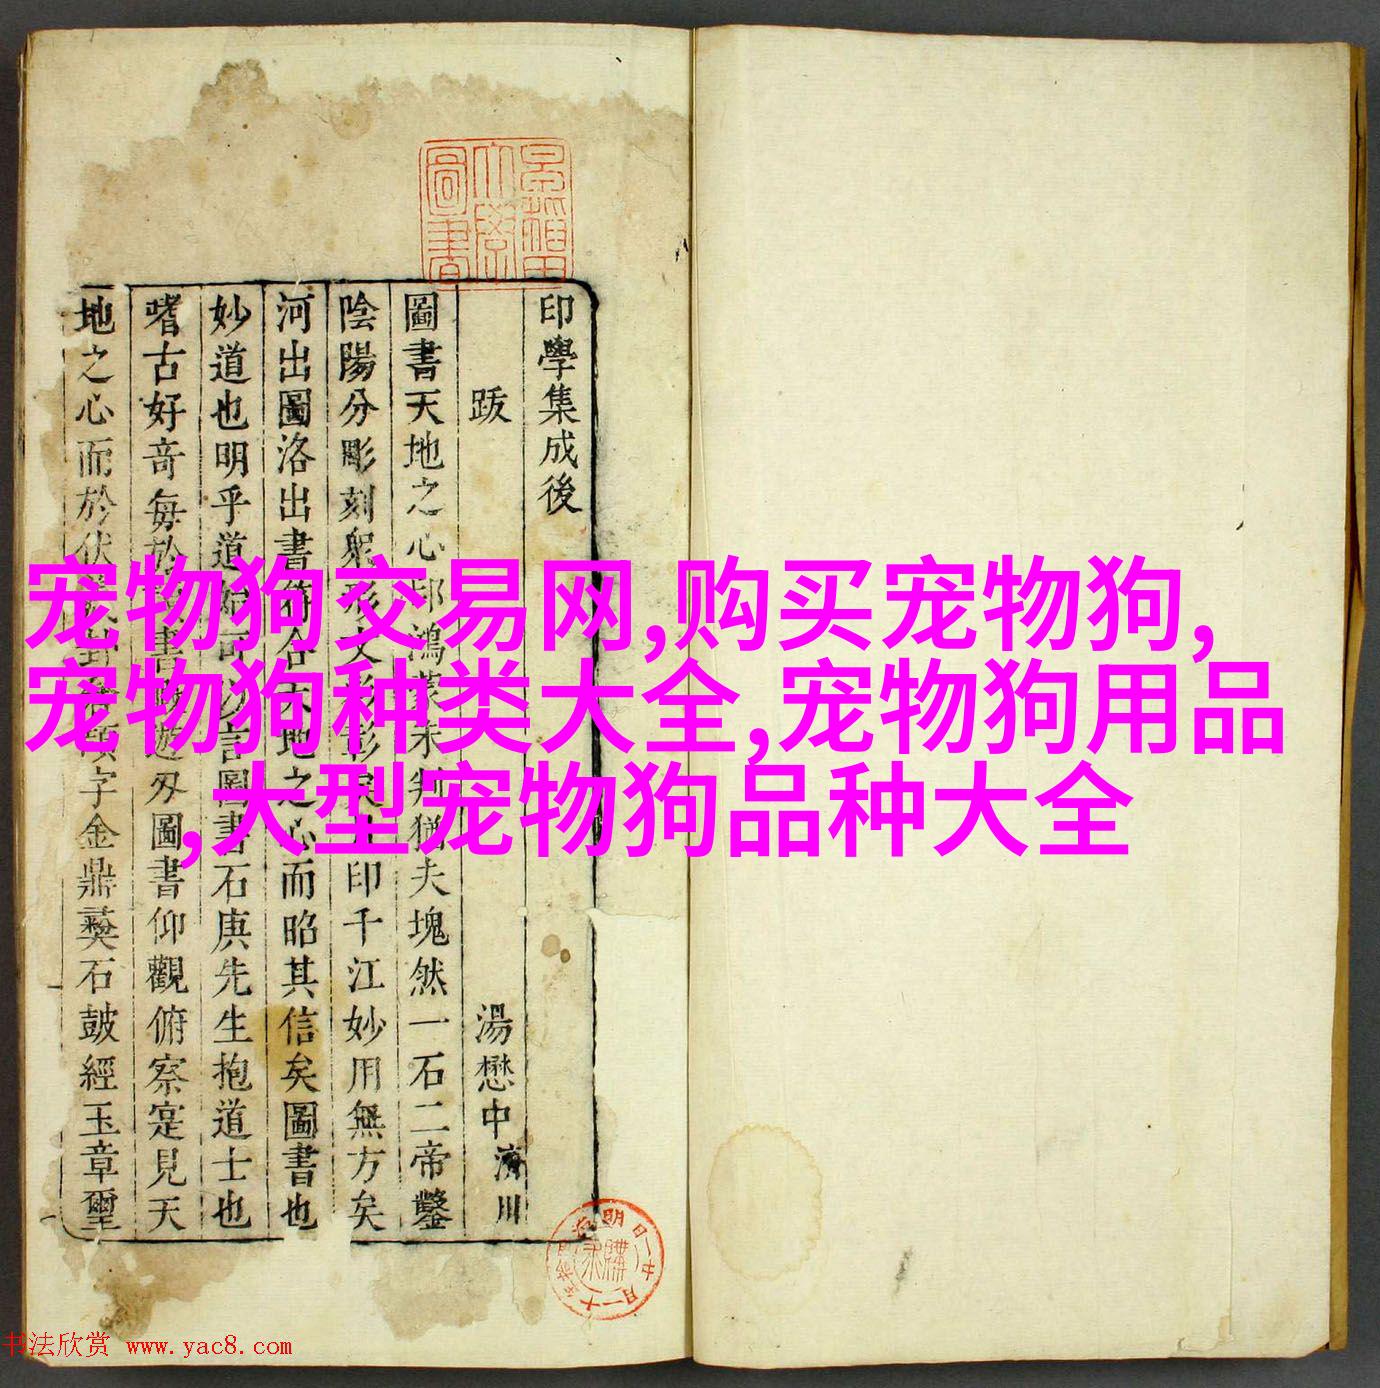 印學集成後
跋
湯懋中濟川
圖書天地之心印鴻蒙未判猶夫塊然一石二帝鑿
陰陽分彫刻
印千江妙用無方矣
河出圖洛出書符合天地之心而昭其信矣圖書也
妙道也明乎道始可以言圖書石庚先生抱道士也
嗜古好竒每於
書
遊刃圖書仰觀俯察寔見天
地之心而於伏羲卦
字金鼎彝石鼓經玉章璽
宠物狗交易网,购买宠物狗,
宠物狗种类大全,宠物狗用品
,大型宠物狗品种大全
書法欣赏 www.yac8.com